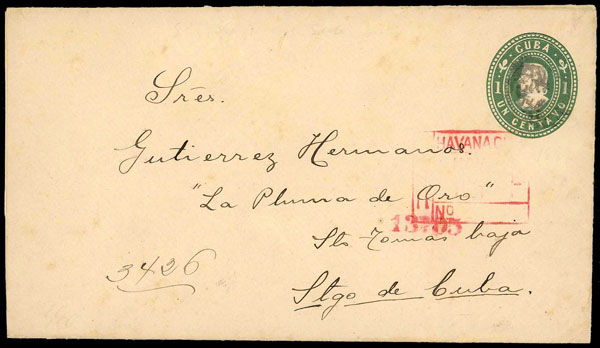 CUBA
1 1
UN CENTAVO
Srēs.
Gutierrez Hermanos.
"La Pluma de Oro"
Sto Tomas baja
Stgo de Cuba.
3426
HAVANA C
R
No
13765